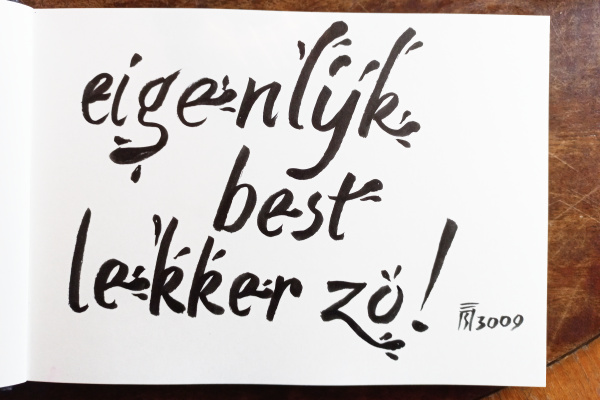 eigenlijk
best
lekker zo!
3009